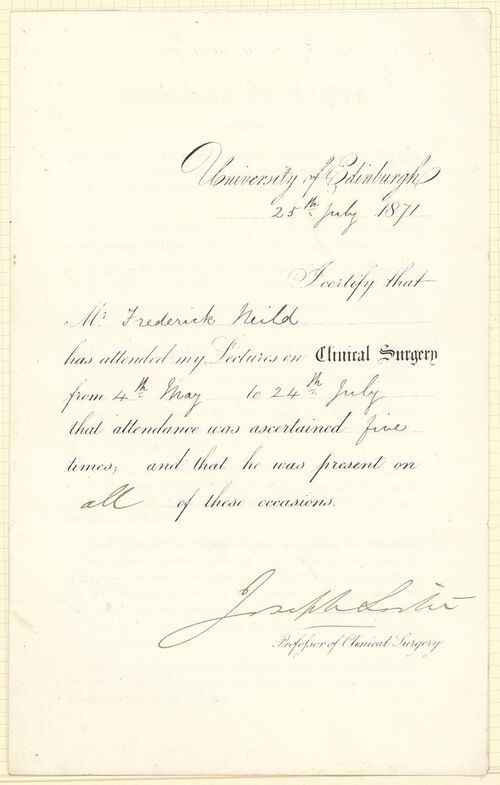 University of Edinburgh
25th July 1871
I certify that
Mr Frederick Neild
has attended my Lectures on Clinical Surgery
from 4th May to 24th July
that attendance was ascertained five
times; and that he was present on
all of these occasions.
Joseph Lister
Professor of Clinical Surgery